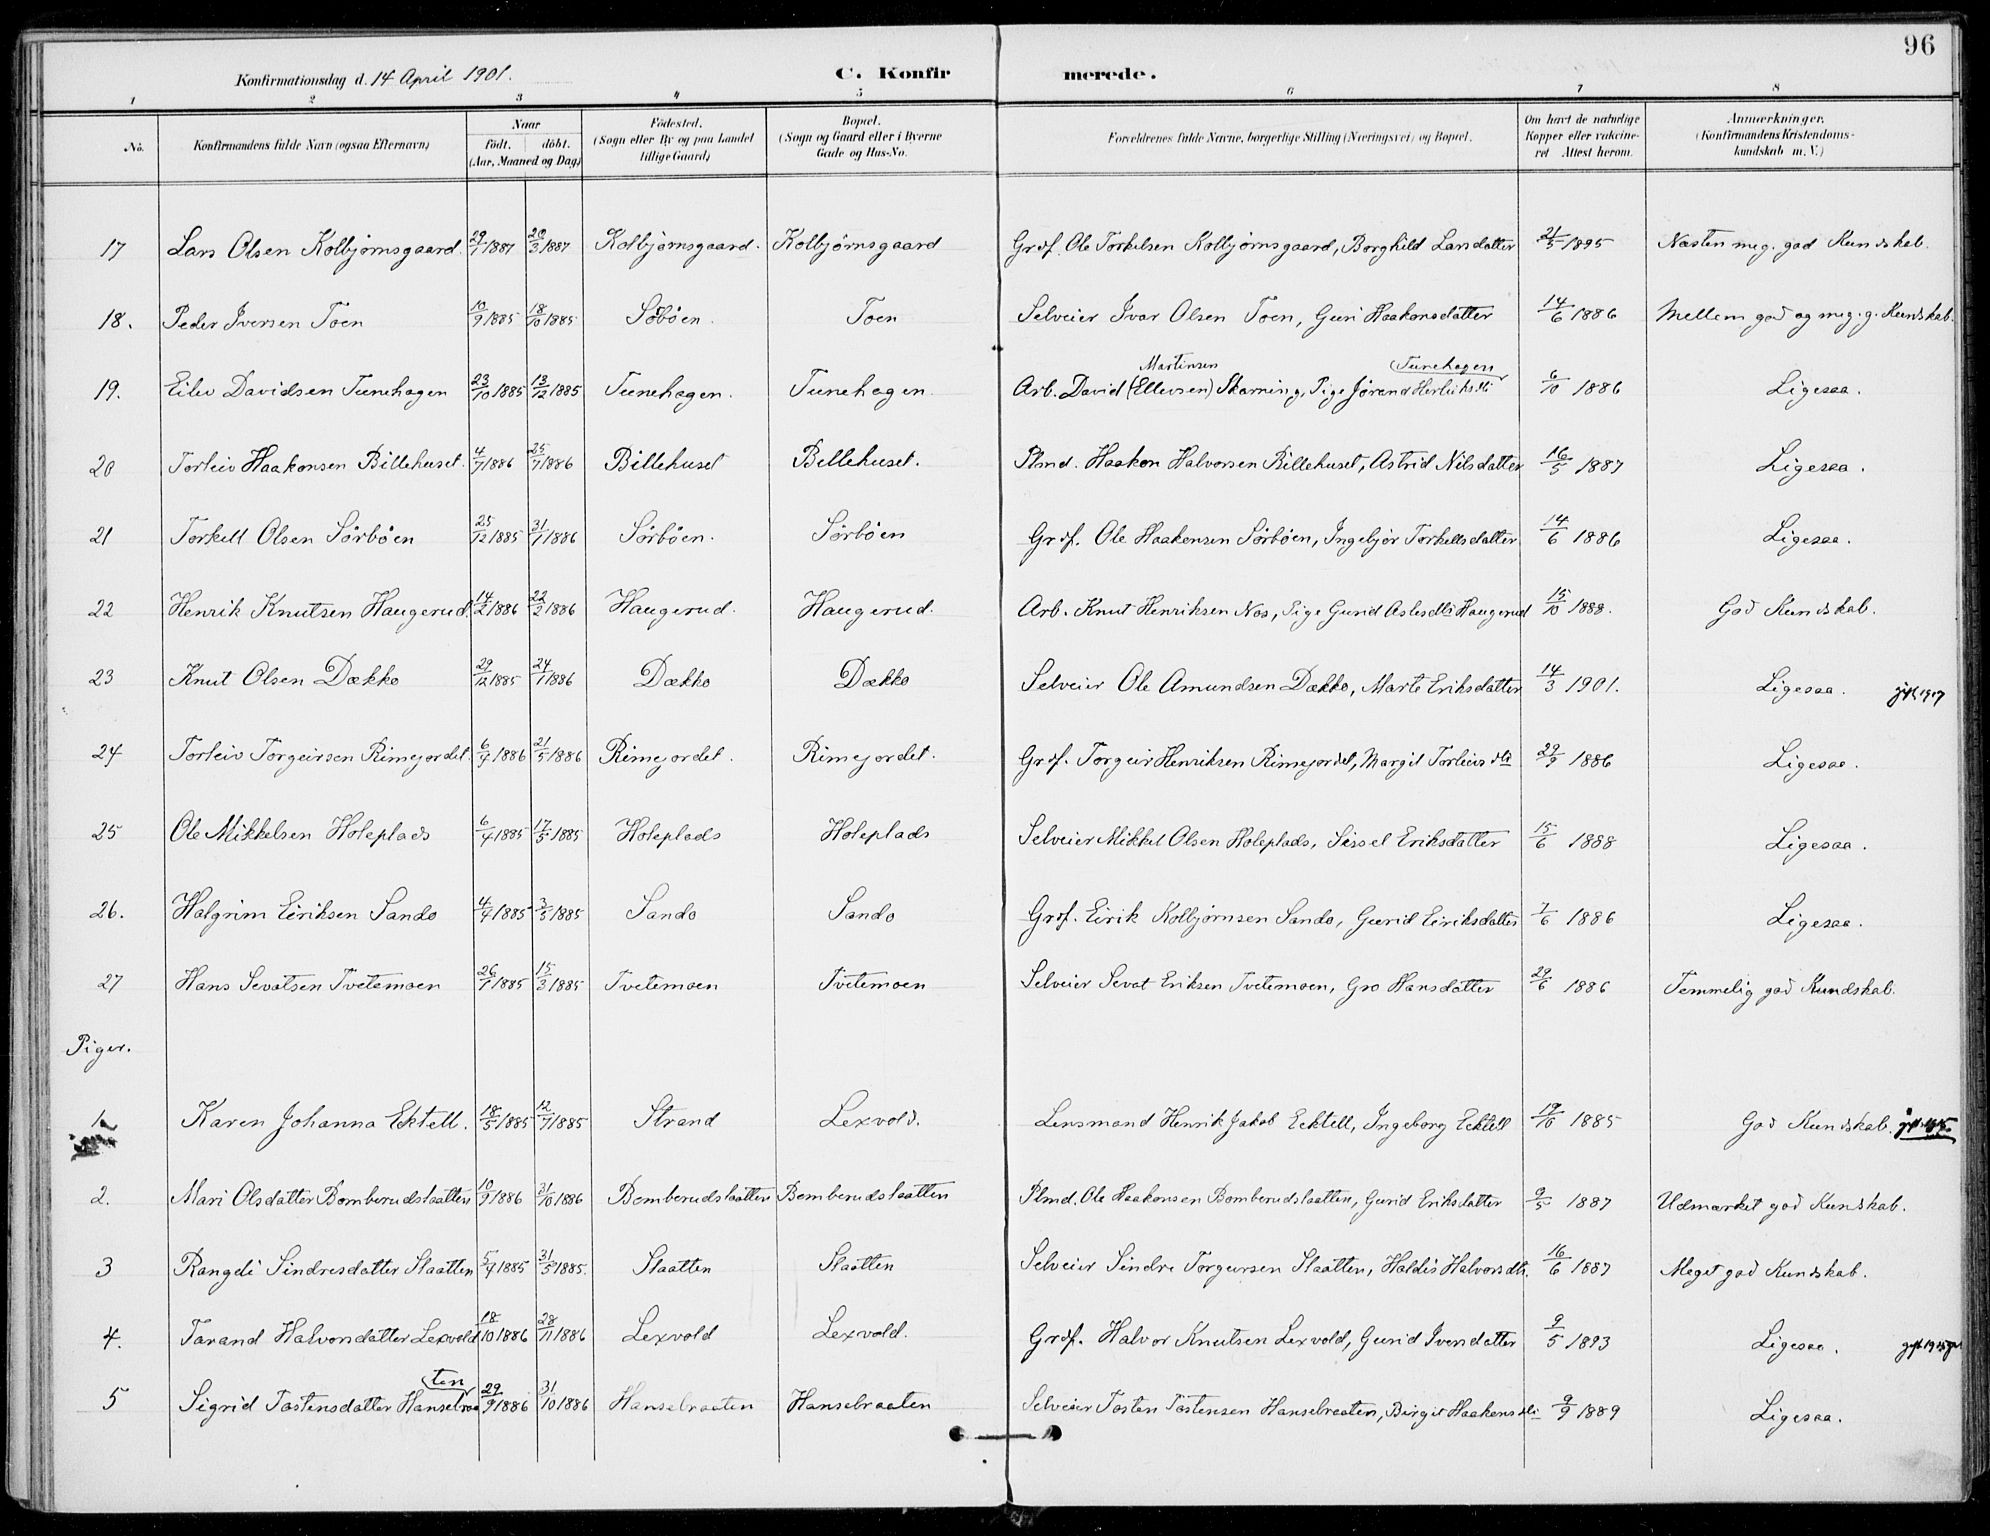 96
Konfirmationsdag d. 14 April 1901. C. Konfirmerede.
1 2 3 4 5 6 7 8
No. Konfirmandens fulde Navn (ogsaa Efternavn) Naar født. døbt. (Aar, Maaned og Dag) Fødested. (Sogn eller By og paa Landet tillige Gaard) Bopæl. (Sogn og Gaard eller i Byerne Gade og Hus-No. Forældrenes fulde Navne, borgerlige Stilling (Næringsvei) og Bopæl. Om havt de naturlige Kopper eller vakcineret Attest herom. Anmærkninger. (Konfirmandens Kristendomskundskab m. V.)
17 Lars Olsen Kolbjørnsgaard. 29/1 1887 20/3 1887 Kolbjørnsgaard. Kolbjørnsgaard Grdf. Ole Torkelsen Kolbjørnsgaard, Borghild Larsdatter 21/5 1895 Næsten meg. god Kundskab.
18. Peder Iversen Toen 10/9 1885 18/10 1885 Søbøen. Toen Selveier Ivar Olsen Toen, Guri Haakonsdatter 14/6 1886 Mellem god og meg. g. Kundskab.
19. Eilev Davidsen Tunehagen 23/10 1885 13/12 1885 Tunehagen. Tunehagen. Arb. David (Ellevsen) Martinsen Skarning, Pige Jørand Herleiksdtr Tunehagen 6/10 1886 Ligesaa.
20 Torleiv Haakonsen Billehuset. 4/7 1886 25/7 1886 Billehuset Billehuset. Plmd. Haakon Halvorsen Billehuset, Astrid Nilsdatter 16/5 1887 Ligesaa.
21 Torkell Olsen Sørbøen 25/12 1885 31/1 1886 Sørbøen. Sørbøen Grdf. Ole Haakensen Sørbøen, Ingebjør Torkellsdatter 14/6 1886 Ligesaa.
22 Henrik Knutsen Haugerud. 14/2 1886 22/2 1886 Haugerud. Haugerud. Arb. Knut Henriksen Nos, Pige Gunid Aslesdtr Haugerud 15/10 1888. God Kundskab.
23 Knut Olsen Dække 29/12 1885 24/1 1886 Dækko Dækko Selveier Ole Amundsen Dækko, Marte Eriksdatter 14/3 1901. Ligesaa. gift 1917
24 Torleiv Torgeirsen Rimejordet. 6/4 1886 21/5 1886 Rimejordet. Rimejordet. Grdf. Torgeir Henriksen Rimejordet, Margit Torleivsdtr 29/9 1886 Ligesaa.
25 Ole Mikkelsen Holeplads 6/4 1885 17/5 1885 Holeplads Holeplads Selveier Mikkel Olsen Holeplads, Sissel Eriksdatter 15/6 1888 Ligesaa.
26. Halgrim Eiriksen Sando 4/4 1885 3/5 1885 Sando Sando Grdf. Eirik Kolbjørnsen Sando, Gurid Eiriksdatter 7/6 1886 Ligesaa.
27 Hans Sevatsen Tvetemoen 26/1 1885 15/3 1885 Tvetemoen Tvetemoen Selveier Sevat Eriksen Tvetemoen, Gro Hansdatter 29/6 1886 Temmelig god Kundskab.
Piger.
1 Karen Johanna Ektell. 18/5 1885 12/7 1885 Strand Lexvold. Lensmand Henrik Jakob Eektell, Ingeborg Ektell 19/10 1885 God Kundskab.
2. Mari Olsdatter Bomberudslaatten 10/9 1886 31/10 1886 Bomberudslaatten Bomberudslaatten Plmd. Ole Haakonsen Bomberudslaatten, Gurid Eriksdatter 9/5 1887 Udmærket god Kundskab.
3 Rangdi Sindresdatter Slaatten 5/4 1885 31/5 1885. Slaatten Slaatten Selveier Sindre Torgeirsen Slaatten, Haldis Halvorsdtr. 16/6 1887 Meget god Kundskab.
4. Tarand Halvorsdatter Lexvold 18/10 1886 28/11 1886 Lexvold Lexvold. Grdf. Halvor Knutsen Lexvold, Gurid Iversdatter 9/5 1893 Ligesaa.
5 Sigrid Tostensdatter Hanselraaten 29/9 1886 31/10 1886 Hanselraaten Hanselraaten Selveier Tosten Tostensen Hanselraaten, Birgit Haakensdtr 9/9 1889 Ligesaa.